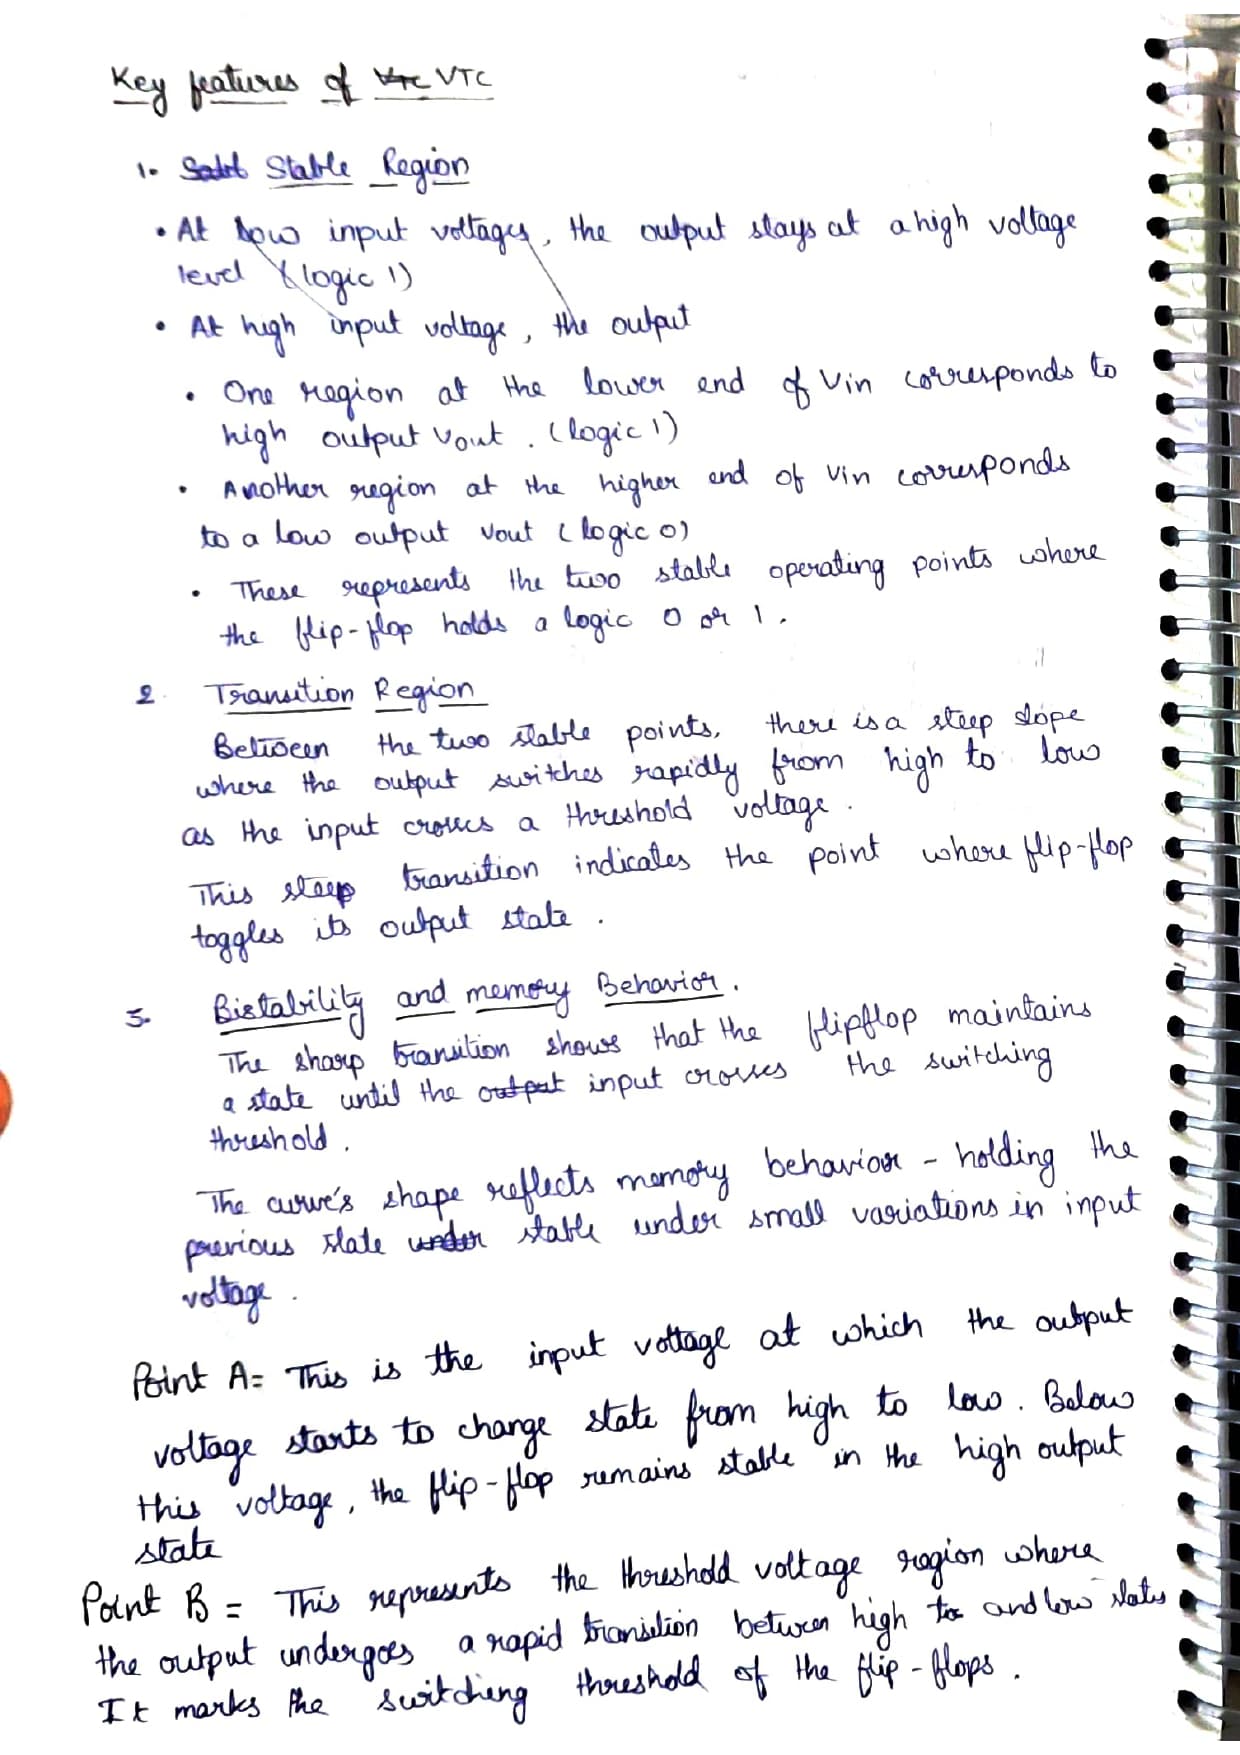 Key features of VTC VTC
1. Stable Region
• At low input voltages, the output stays at a high voltage
level (logic 1)
• At high input voltage, the output
• One region at the lower end of Vin corresponds to
high output Vout. (logic 1)
• Another region at the higher end of Vin corresponds
to a low output Vout (logic 0)
• These represents the two stable operating points where
the flip-flop holds a logic 0 or 1.
2. Transition Region
Between the two stable points, there is a steep slope
where the output switches rapidly from high to low
as the input crosses a threshold voltage.
This steep transition indicates the point where flip-flop
toggles its output state.
3. Bistability and memory Behavior.
The sharp transition shows that the flipflop maintains
a state until the output input crosses the switching
threshold.
The curve's shape reflects memory behaviour - holding the
previous state under stable under small variations in input
voltage.
Point A= This is the input voltage at which the output
voltage starts to change state from high to low. Below
this voltage, the flip-flop remains stable in the high output
state
Point B = This represents the threshold voltage region where
the output undergoes a rapid transition between high to and low states
It marks the switching threshold of the flip-flops.